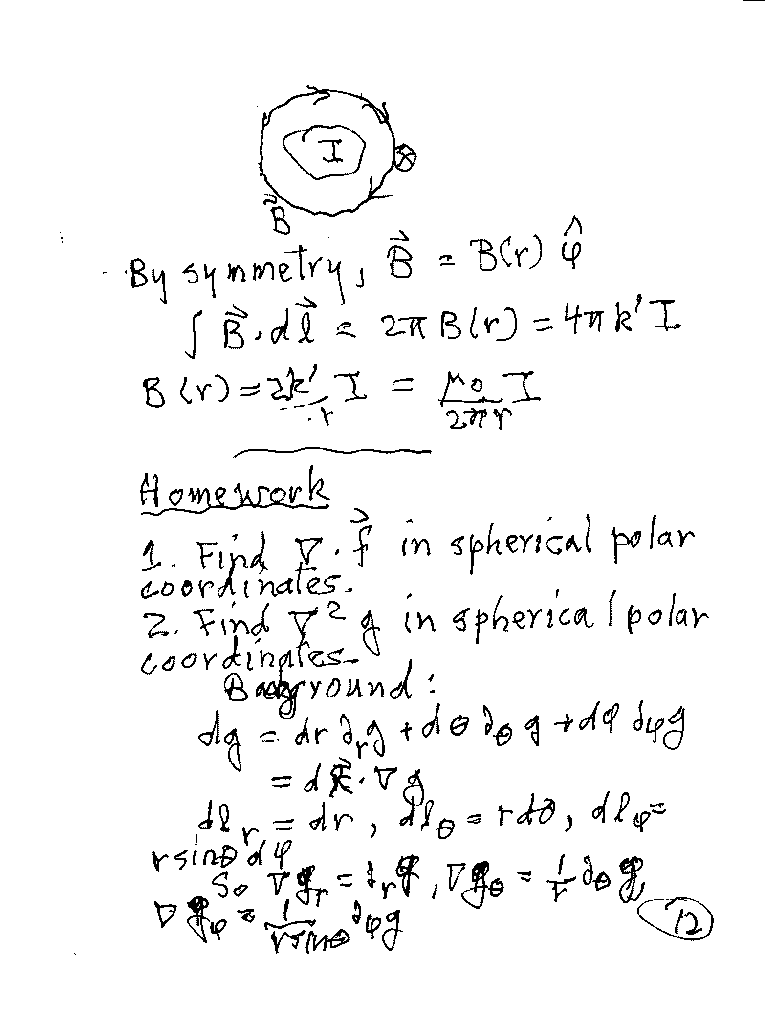 I
⊗
B⃗
By symmetry, B⃗ = B(r) φ̂
∫ B⃗ · dl⃗ = 2π B(r) = 4π k' I
B(r) = 2k'/r I = μ₀ I / 2πr
Homework
1. Find ∇ · f⃗ in spherical polar
coordinates.
2. Find ∇² g in spherical polar
coordinates.
Background:
dg = dr ∂r g + dθ ∂θ g + dφ ∂φ g
= dr⃗ · ∇ g
dlr = dr, dlθ = r dθ, dlφ =
r sinθ dφ
So ∇gr = ∂r g, ∇gθ = 1/r ∂θ g
∇gφ = 1/(r sinθ) ∂φ g
12